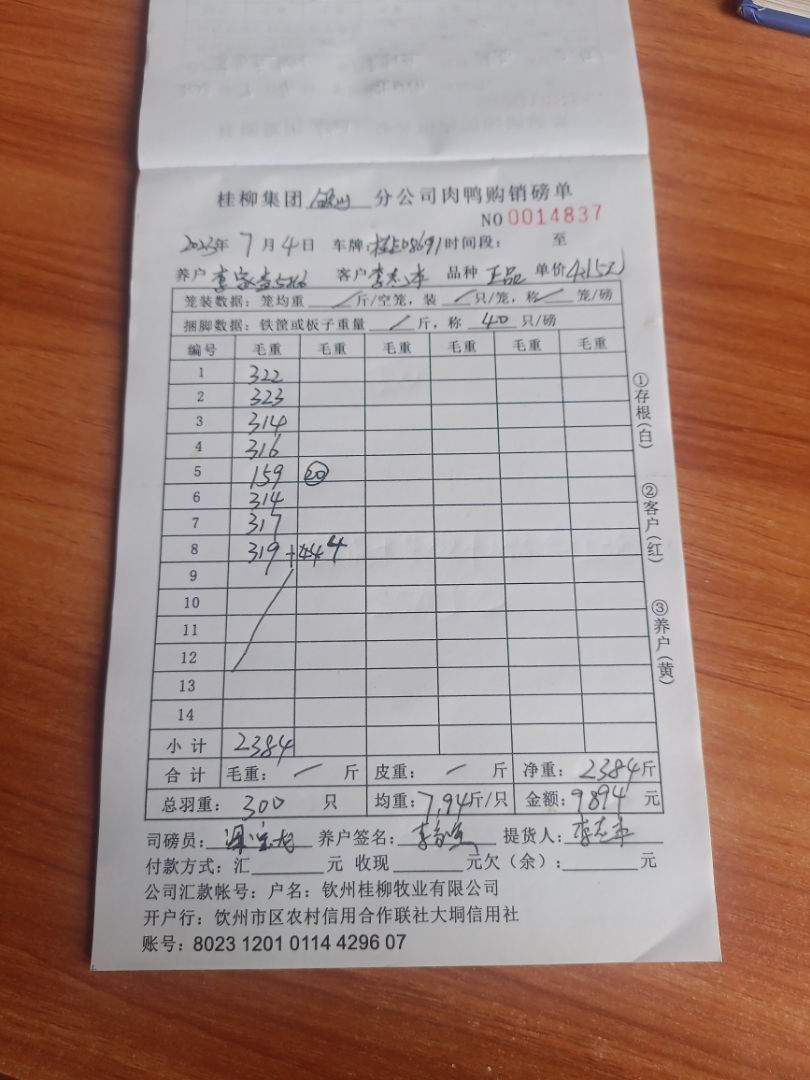 桂柳集团 分公司肉鸭购销磅单
NO 0014837
2023年 7月4日 车牌 时间段： 至
养户 客户 李志 品种 正品 单价 4.15元
笼装数据：笼均重 / 斤/空笼，装 / 只/笼，称 / 笼/磅
捆脚数据：铁筐或板子重量 / 斤，称 40 只/磅
编号 毛重 毛重 毛重 毛重 毛重 毛重
1 322
2 323
3 314
4 316
5 159 20
6 314
7 317
8 319 +44.4
9
10
11
12
13
14
小计 2384
合计 毛重： / 斤 皮重： / 斤 净重：2384斤
总羽重：300 只 均重：7.94斤/只 金额：9894 元
司磅员： 养户签名： 提货人：李志
付款方式：汇 元 收现 元欠（余）： 元
公司汇款帐号：户名：钦州桂柳牧业有限公司
开户行：钦州市区农村信用合作联社大垌信用社
账号：8023 1201 0114 4296 07
①存根(白)
②客户(红)
③养户(黄)